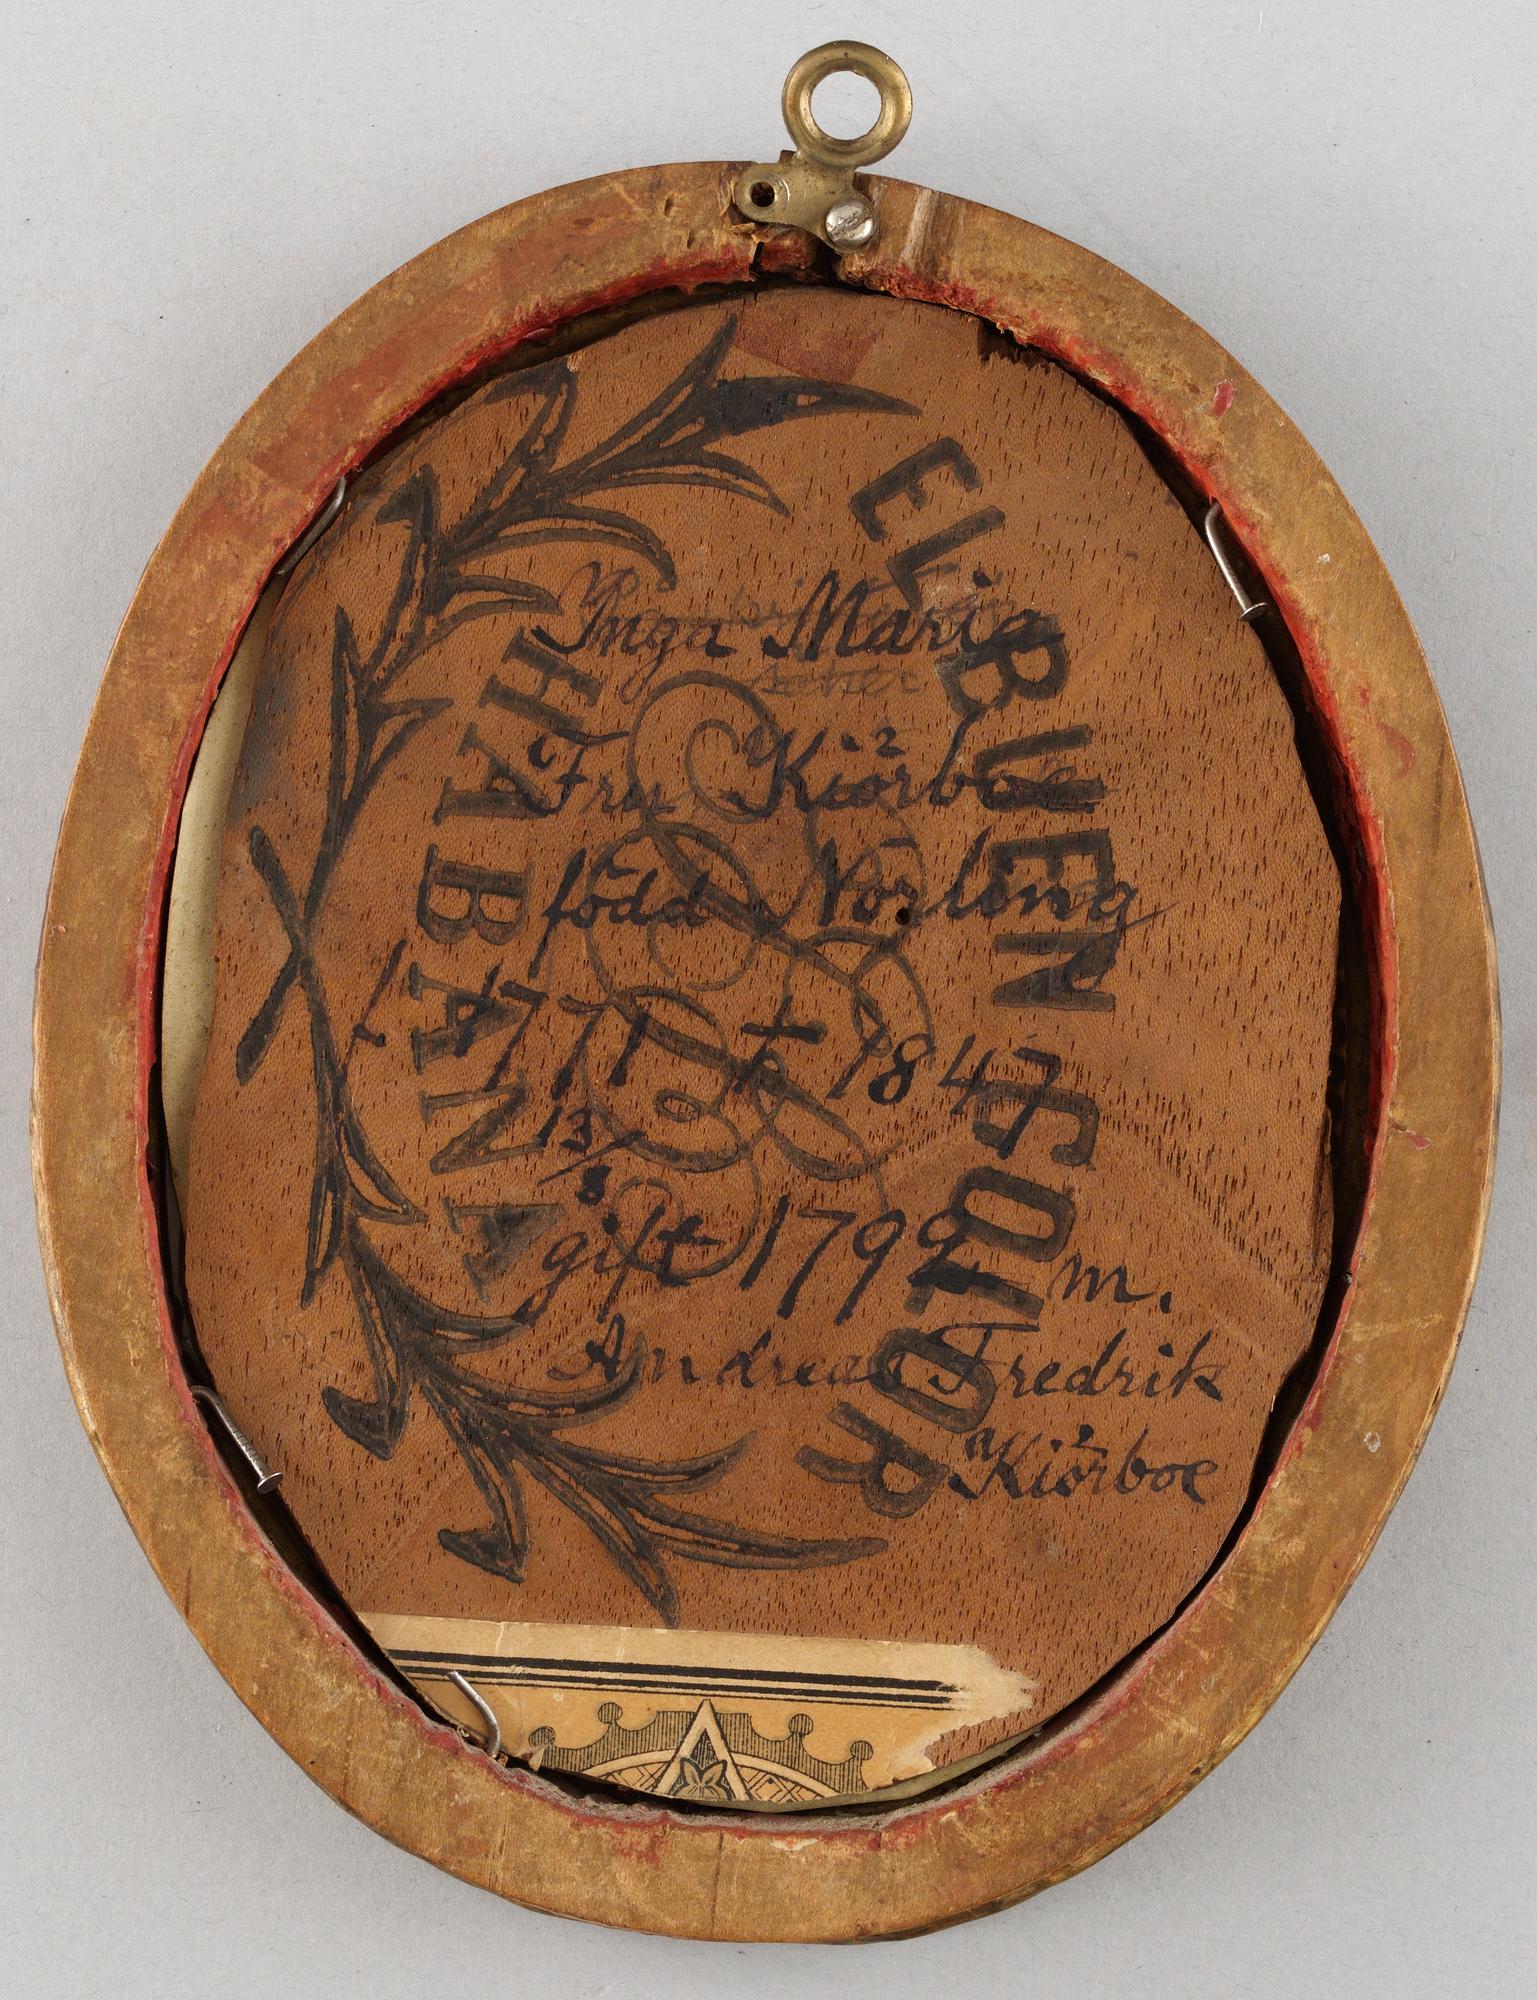 EL BUEN
HABANA
Inga Maria
Fru Kiörboe
född Norling
f. 1771 † 1847
13/8
gift 1799 m.
Andreas Fredrik
Kiörboe